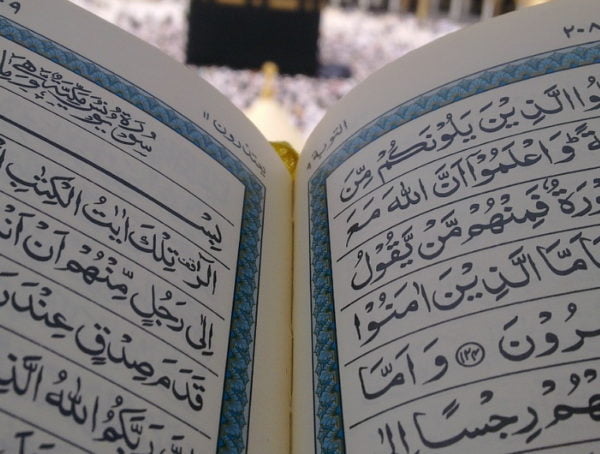 ٢٠٨
التوبة ٩
الَّذِيْنَ يَلُوْنَكُمْ مِّنَ
وَاعْلَمُوْٓا اَنَّ اللّٰهَ مَعَ
وْرَةٌ فَمِنْهُمْ مَّنْ يَّقُوْلُ
اَمَّا الَّذِيْنَ اٰمَنُوْا
رُوْنَ ﴿١٢٤﴾ وَاَمَّا
هُمْ رِجْسًا اِلٰى
يعتذرون ١١
سُوْرَةُ يُوْنُسَ مَكِّيَّةٌ وَّهِىَ
بِسْـ
الٓرٰ تِلْكَ اٰيٰتُ الْكِتٰبِ
اِلٰى رَجُلٍ مِّنْهُمْ اَنْ
قَدَمَ صِدْقٍ عِنْدَ
رَبَّكُمُ اللّٰهُ الَّذِ